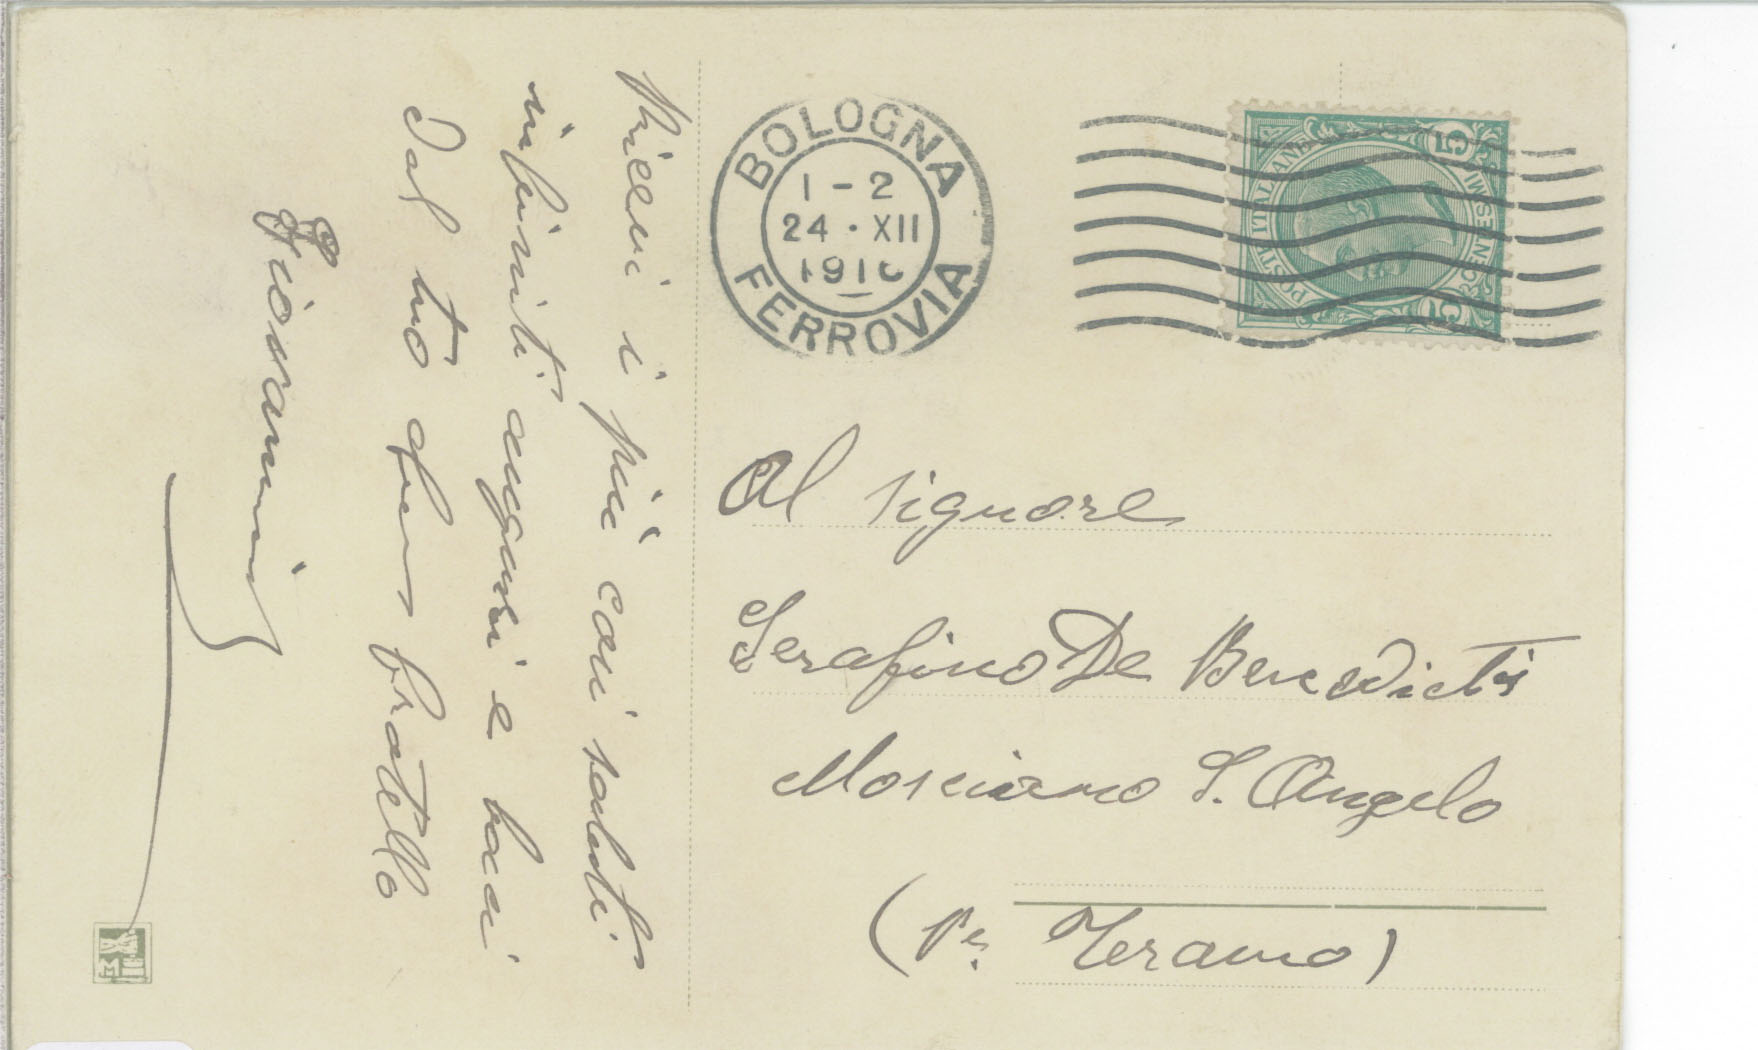 Ricevi i più cari saluti
infiniti auguri e baci
Dal tuo aff.mo fratello
Giovannino
BOLOGNA
1-2
24·XII
191
FERROVIA
POSTE ITALIANE
CENTESIMI
5
5
Al signore
Serafino De Benedictis
Mosciano S. Angelo
(Pr. Teramo)
M